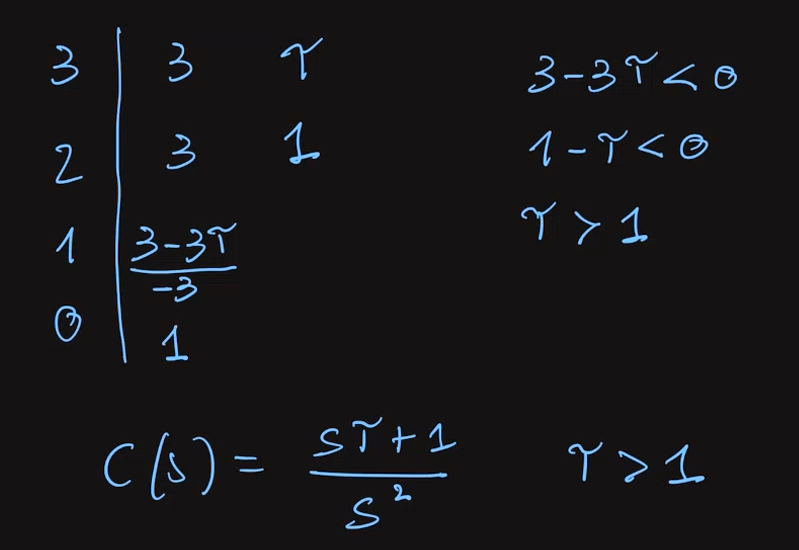 3 | 3 τ
2 | 3 1
1 | (3-3τ)/(-3)
0 | 1
3-3τ<0
1-τ<0
τ>1
C(s) = (sτ+1)/s² τ>1